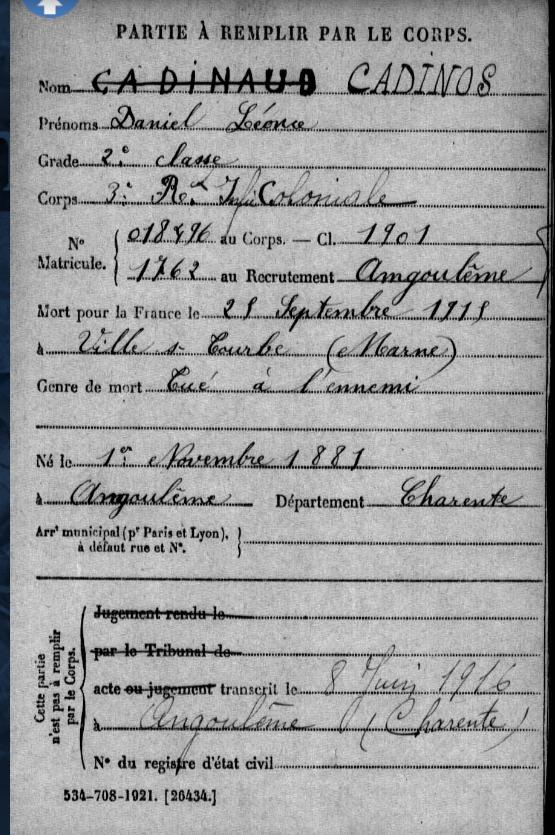 PARTIE À REMPLIR PAR LE CORPS.
Nom CADINAUD CADINOS
Prénoms Daniel Léonce
Grade 2e classe
Corps 3e Rt Inf Coloniale
N° Matricule. 018496 au Corps. — Cl. 1901
1762 au Recrutement Angoulême
Mort pour la France le 25 Septembre 1915
à Ville s Tourbe (Marne)
Genre de mort Tué à l'ennemi
Né le 1er Novembre 1881
à Angoulême Département Charente
Arrt municipal (pr Paris et Lyon),
à défaut rue et N°.
Cette partie n'est pas à remplir par le Corps.
Jugement rendu le
par le Tribunal de
acte ou jugement transcrit le 8 Juin 1916
à Angoulême (Charente)
N° du registre d'état civil
534-708-1921. [26434.]